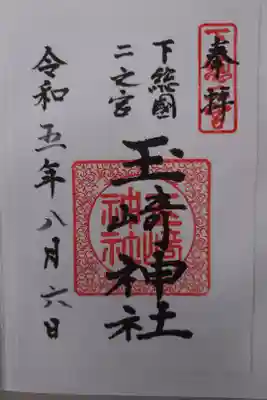 奉拝
下総國
二之宮
玉崎神社
令和五年八月六日